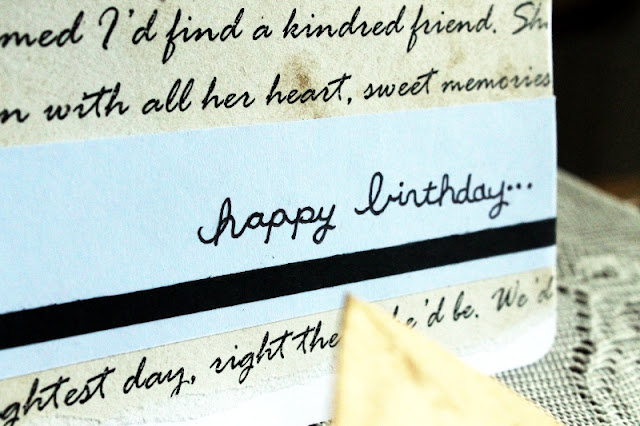 I'd find a kindred friend.
with all her heart, sweet memories
happy birthday...
day, right he'd be. We'd